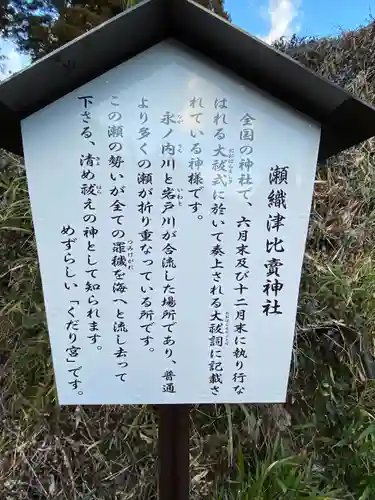 瀬織津比賣神社
全国の神社で、六月末及び十二月末に執り行な
はれる大祓式に於いて奏上される大祓詞に記載さ
れている神様です。
永ノ内川と岩戸川が合流した場所であり、普通
より多くの瀬が折り重なつている所です。
この瀬の勢いが全ての罪穢を海へと流し去って
下さる、清め祓えの神として知られます。
めずらしい「くだり宮」です。